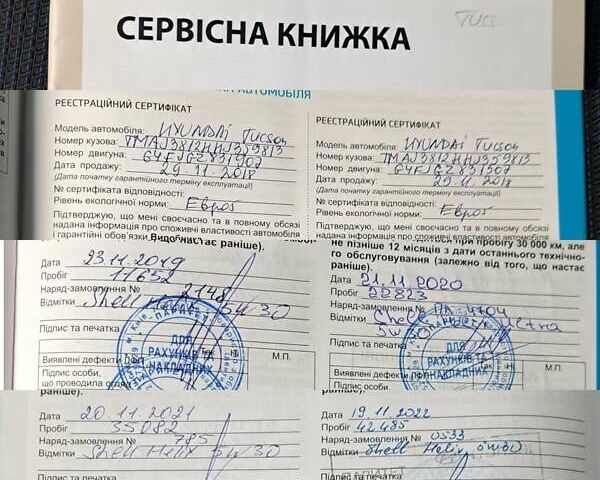 СЕРВІСНА КНИЖКА
АВТОМОБІЛЯ
РЕЄСТРАЦІЙНИЙ СЕРТИФІКАТ
Модель автомобіля: HYUNDAI Tucson
Номер кузова: TMAJ3812HHJ359813
Номер двигуна: G4FJGZ831907
Дата продажу: 29.11.2018
(Дата початку гарантійного терміну експлуатації)
№ сертифіката відповідності:
Рівень екологічної норми: Евро5
Підтверджую, що мені своєчасно та в повному обсязі
надана інформація про споживчі властивості автомобіля
і гарантійні обов'язки
РЕЄСТРАЦІЙНИЙ СЕРТИФІКАТ
Модель автомобіля: HYUNDAI Tucson
Номер кузова: TMAJ3812HHJ359813
Номер двигуна: G4FJGZ831907
Дата продажу: 29.11.2018
(Дата початку гарантійного терміну експлуатації)
№ сертифіката відповідності:
Рівень екологічної норми: Евро5
Підтверджую, що мені своєчасно та в повному обсязі
надана інформація про споживчі властивості автомобіля
раніше).
Дата 23.11.2019
Пробіг 11652
Наряд-замовлення № 2148
Відмітки Shell Helix 5w30
Підпис та печатка
ДЛЯ
РАХУНКІВ ТА
НАКЛАДНИХ
М.П.
Виявлені дефекти ЛФП
Підпис особи,
що проводила огляд
при пробігу 30 000 км, але
не пізніше 12 місяців з дати останнього технічно-
го обслуговування (залежно від того, що настає
раніше).
Дата 21.11.2020
Пробіг 22823
Наряд-замовлення № 4704
Відмітки Shell Ultra
5w
Підпис та печатка
ДЛЯ
РАХУНКІВ ТА
НАКЛАДНИХ
М.П.
Виявлені дефекти
Підпис особи,
раніше).
Дата 20.11.2021
Пробіг 35082
Наряд-замовлення № 785
Відмітки Shell Helix 5w30
Підпис та печатка
Дата 19.11.2022
Пробіг 42485
Наряд-замовлення № 0533
Відмітки Shell Helix 5w30
Підпис та печатка